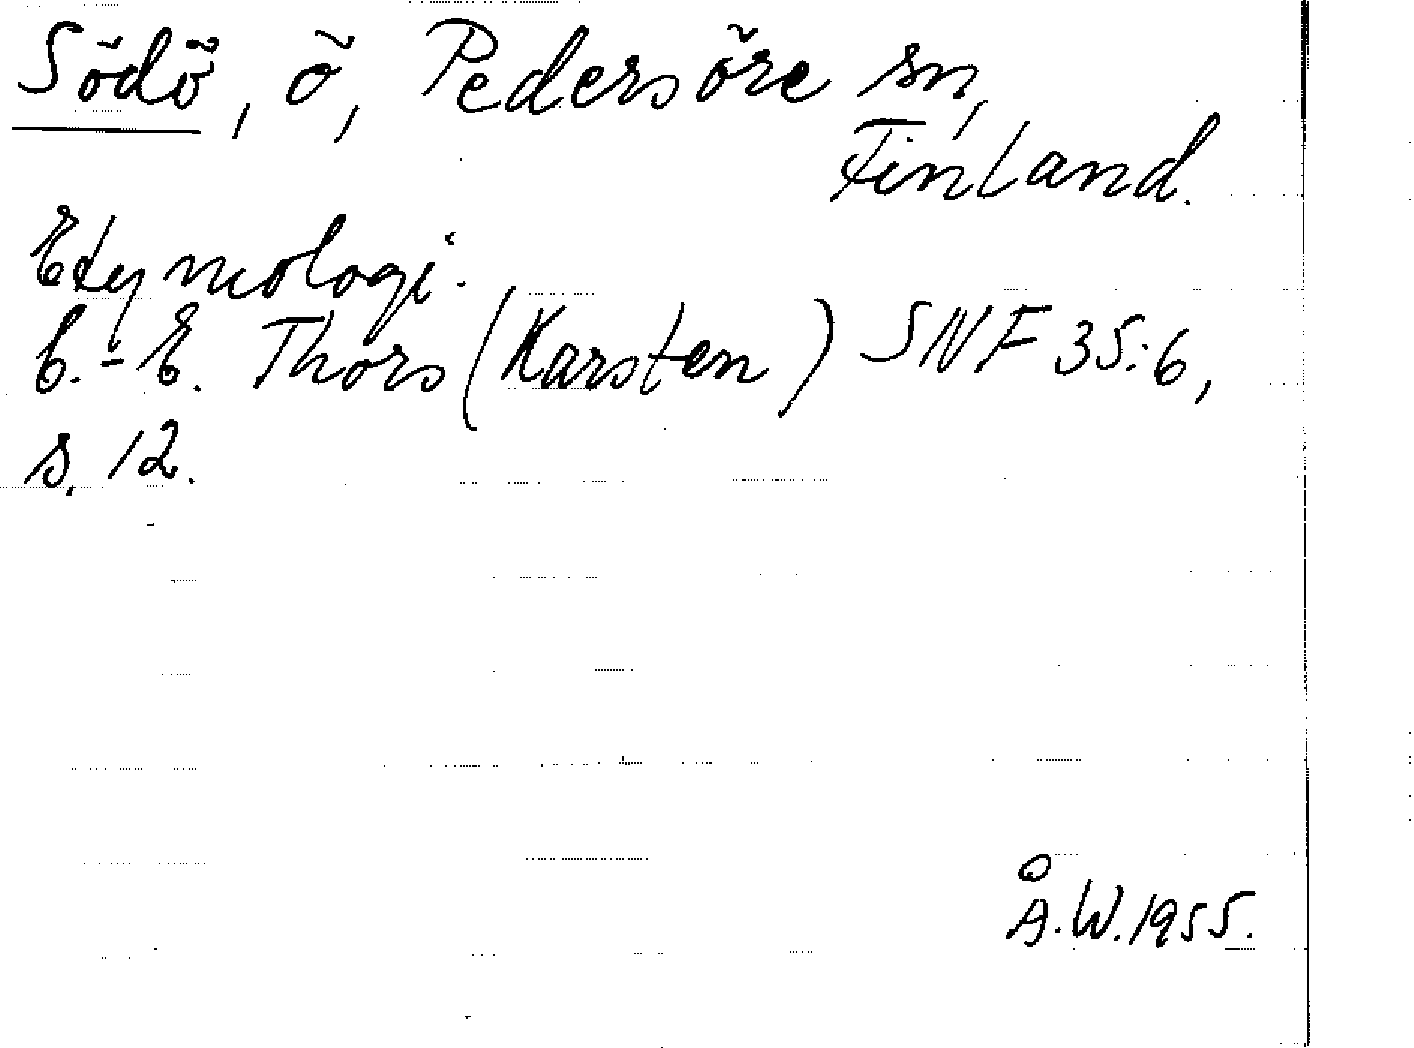 Södö, ö, Pedersöre sn,
Finland.
Etymologi.
C.-E. Thors (Karsten) SNF 35:6,
s. 12.
Å.W. 1955.